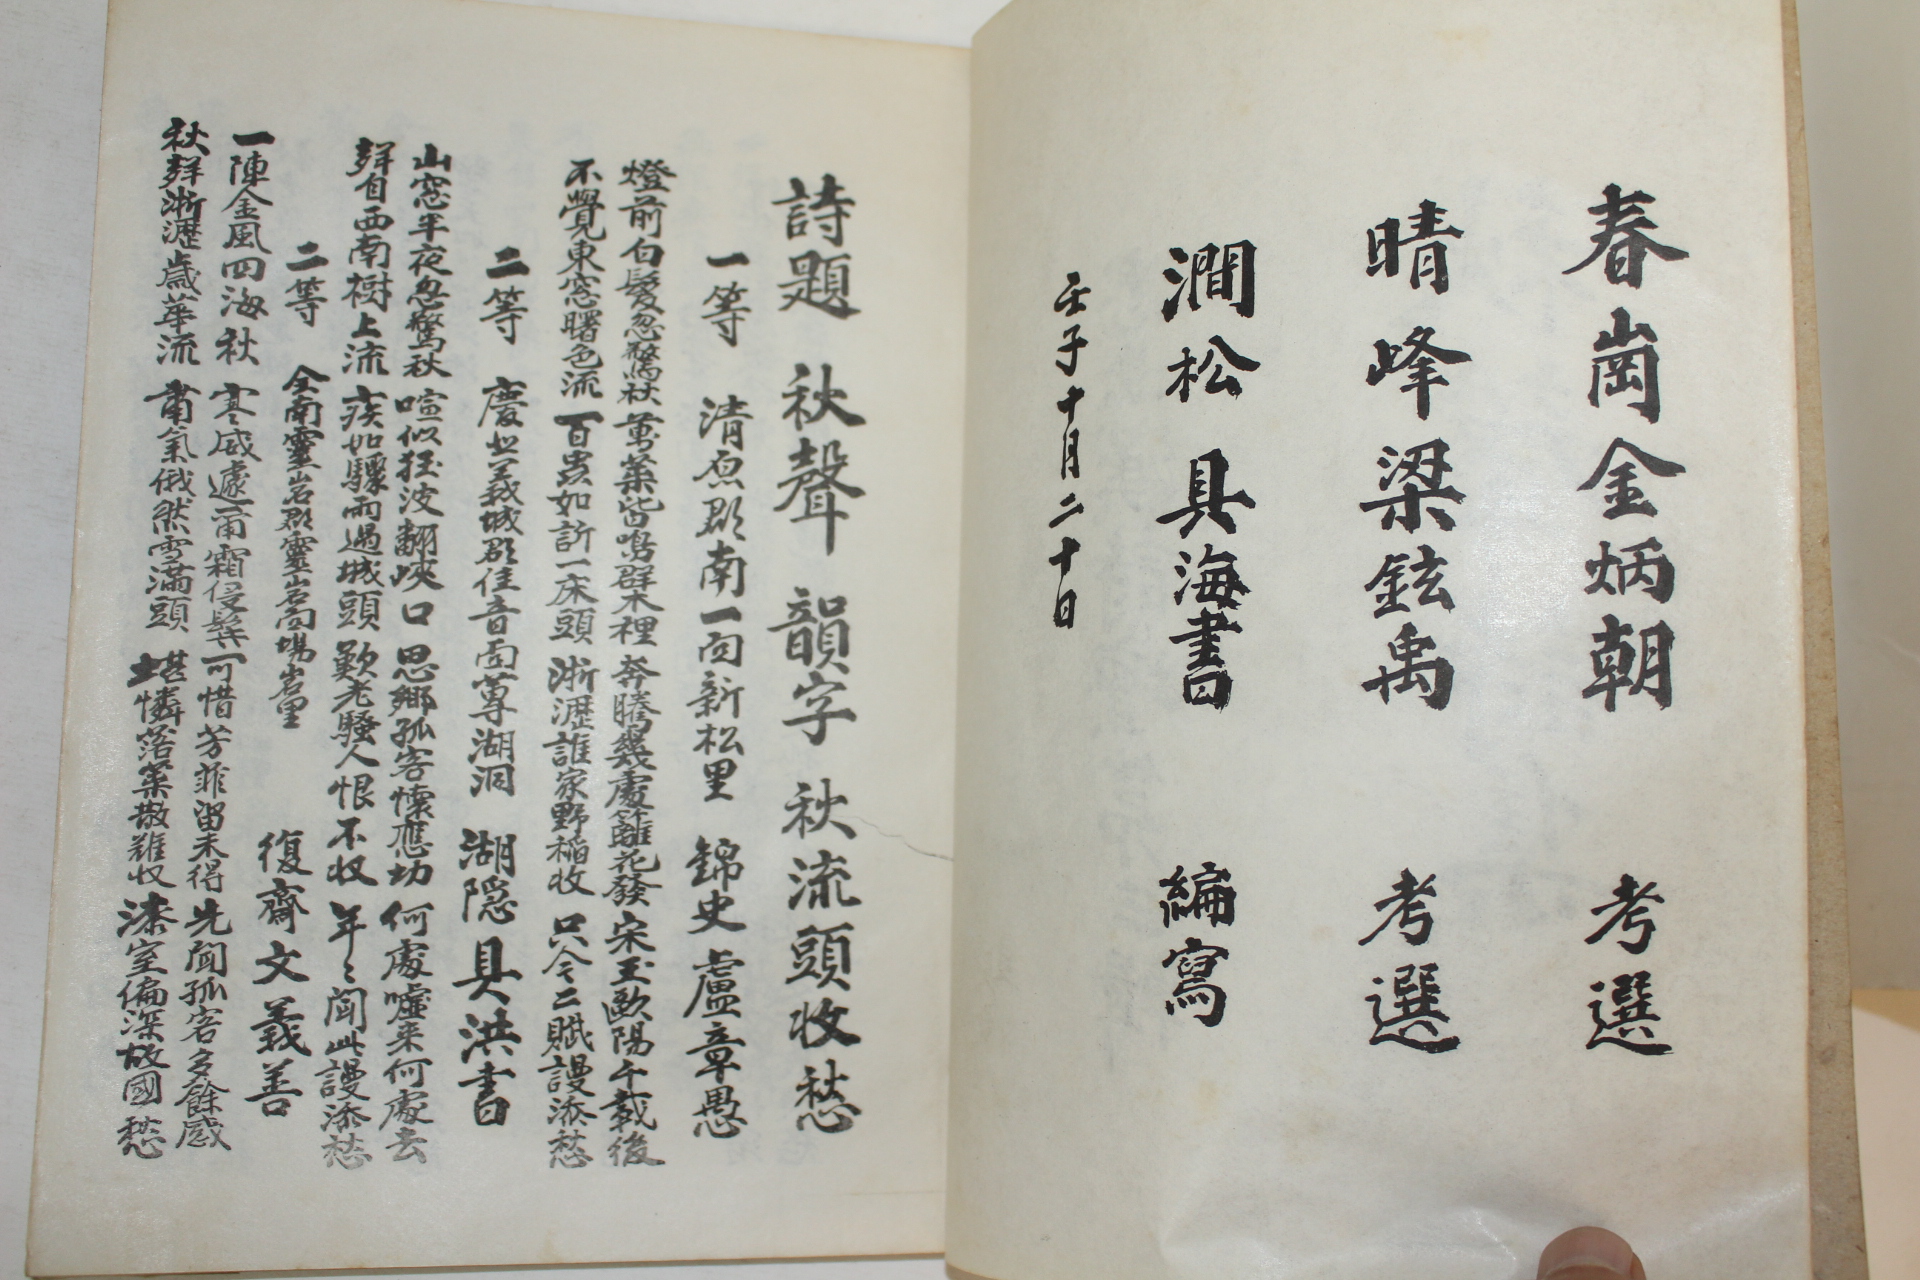 春崗金炳朝 考選
晴峰梁鉉禹 考選
澗松具海書 編寫
壬子十月二十日
詩題 秋聲 韻字 秋流頭收愁
一等 清原郡南一面新松里 錦史 盧章愚
燈前白髮忽驚秋 萬葉皆鳴群木裡 奔騰幾處籬花發 宋玉歐陽千載後
不覺東窓曙色流 百虫如訴一床頭 淅瀝誰家野稻收 只今二賦謾添愁
二等 慶北義城郡佳音面尊湖洞 湖隱 具洪書
山窓半夜忽驚秋 喧似狂波翻峽口 思鄉孤客懷應切 何處噓来何處去
聲自西南樹上流 疾如驟雨過城頭 歎老騷人恨不收 年々聞此謾添愁
二等 全南靈岩郡靈岩面場岩里 復齋 文義善
一陣金風四海秋 寒威遽逼霜侵鬂 可惜芳菲留未得 先聞孤客多餘感
秋聲淅瀝歲華流 肅氣俄然雪滿頭 堪憐落葉散難收 漆室偏深故國愁